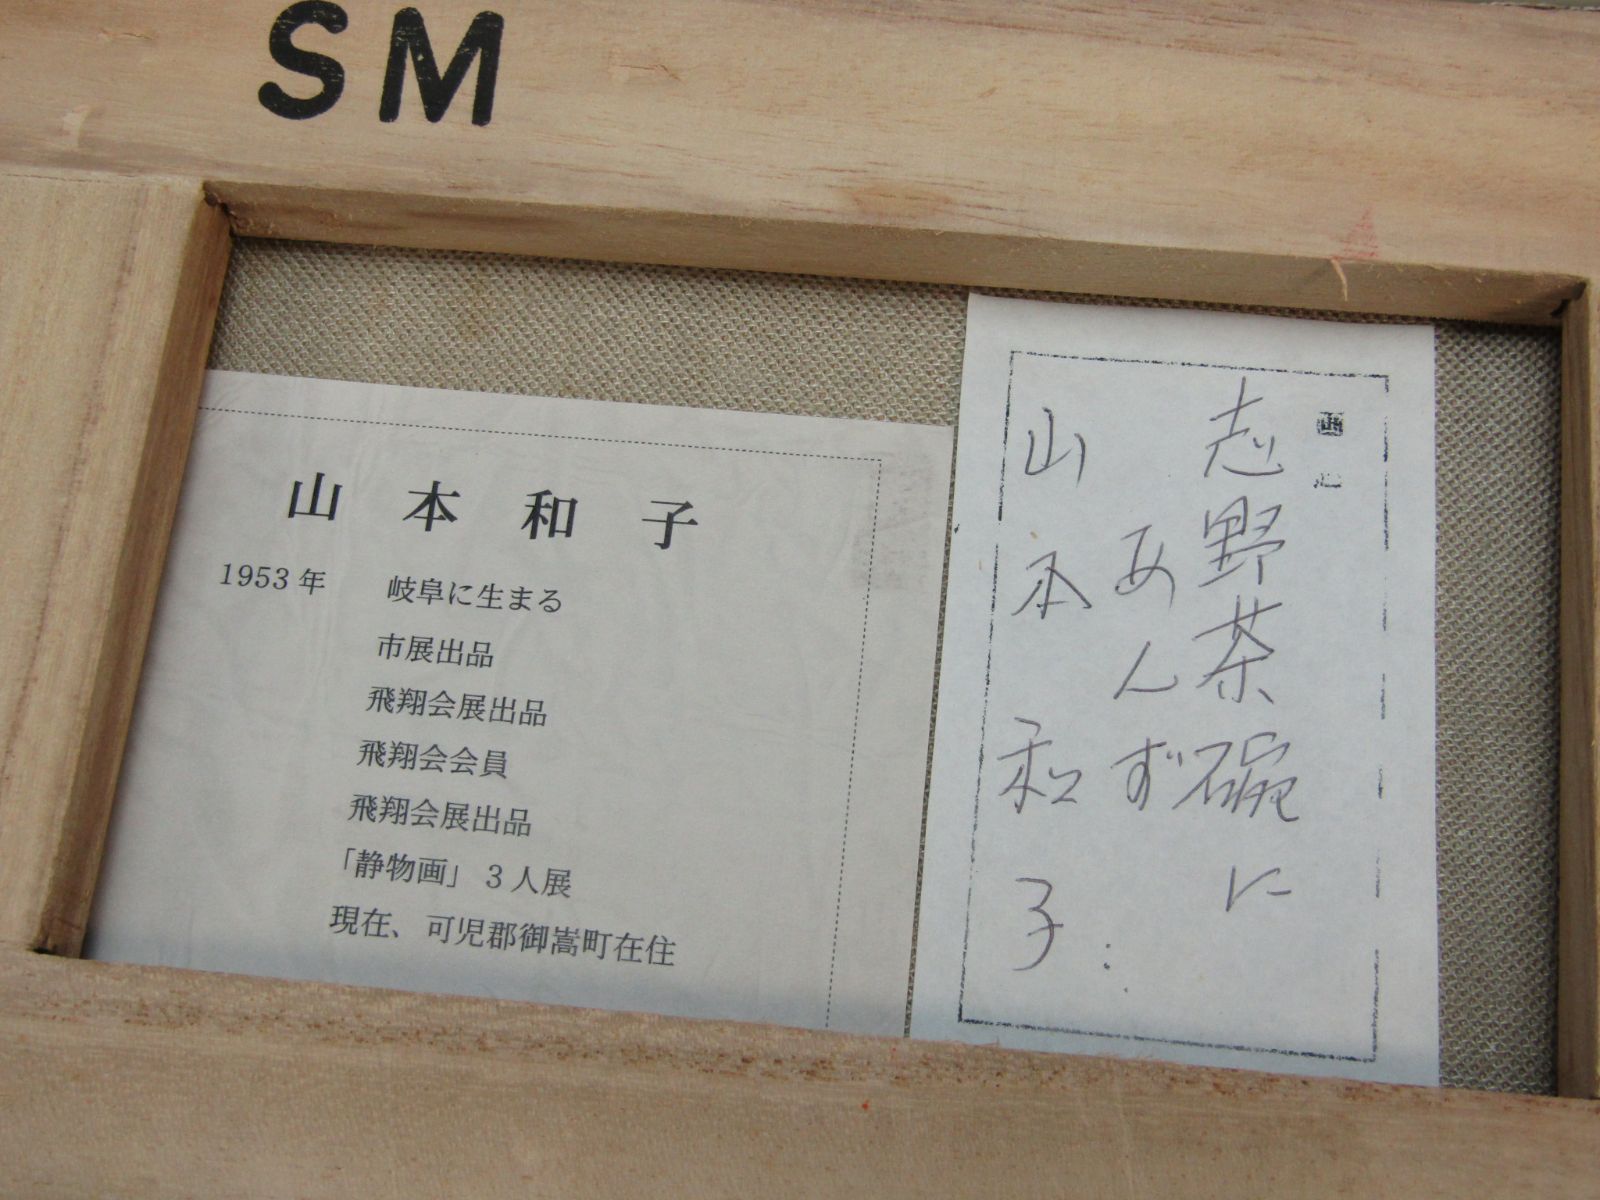 SM
山本和子
1953年 岐阜に生まる
市展出品
飛翔会展出品
飛翔会会員
飛翔会展出品
「静物画」3人展
現在、可児郡御嵩町在住
志野茶碗に
あんず
山本和子